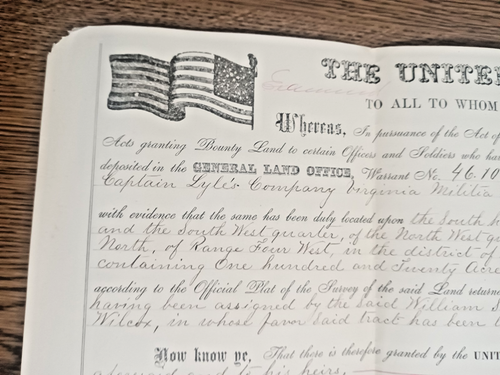 THE UNITE
TO ALL TO WHOM
Whereas, In pursuance of the Act of
Acts granting Bounty Land to certain Officers and Soldiers who ha
deposited in the GENERAL LAND OFFICE, Warrant No. 46.10
Captain Lyle's Company Virginia Militia
with evidence that the same has been duly located upon the South
and the South West quarter, of the North West q
North, of Range Four West, in the district of
containing One hundred and Twenty Acre
according to the Official Plat of the Survey of the said Land returne
having been assigned by the said William S
Wilcox, in whose favor said tract has been
Now know ye, That there is therefore granted by the UNIT
aforesaid and to his heirs.